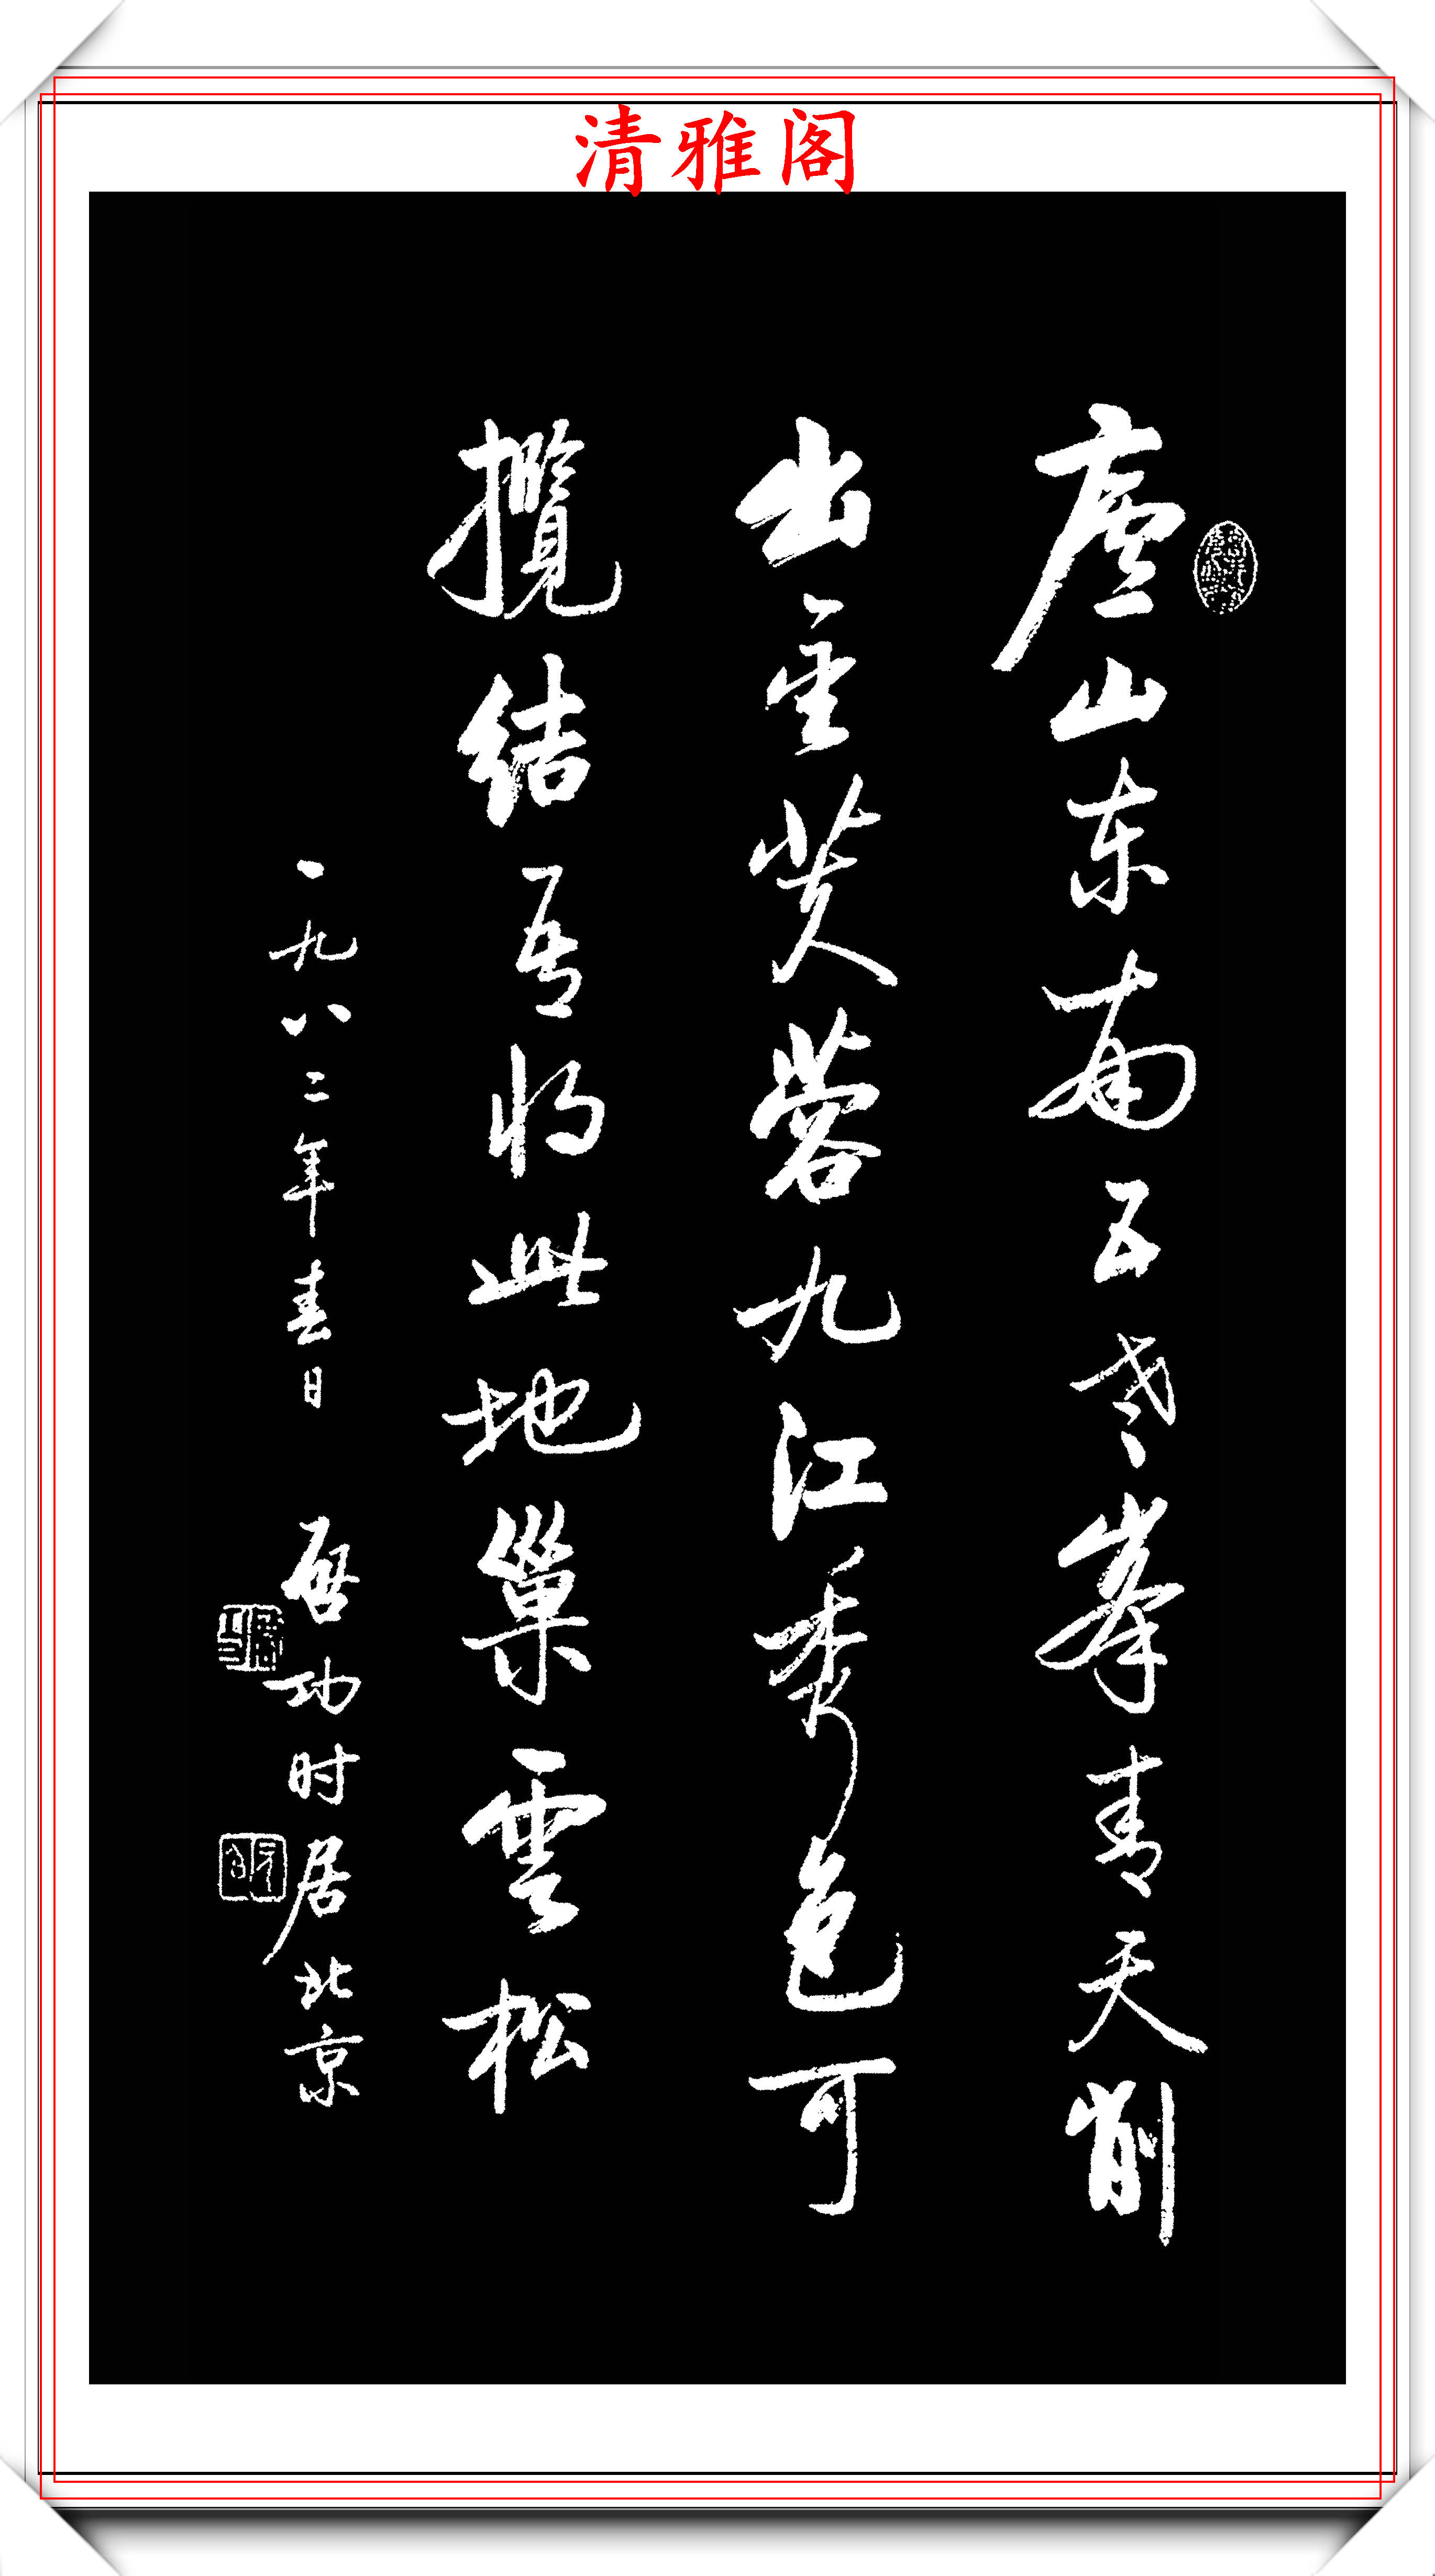 清雅阁
廬山东南五老峯青天削
出金芙蓉九江秀色可
攬结吾将此地巢雲松
一九八二年春日 启功时居北京